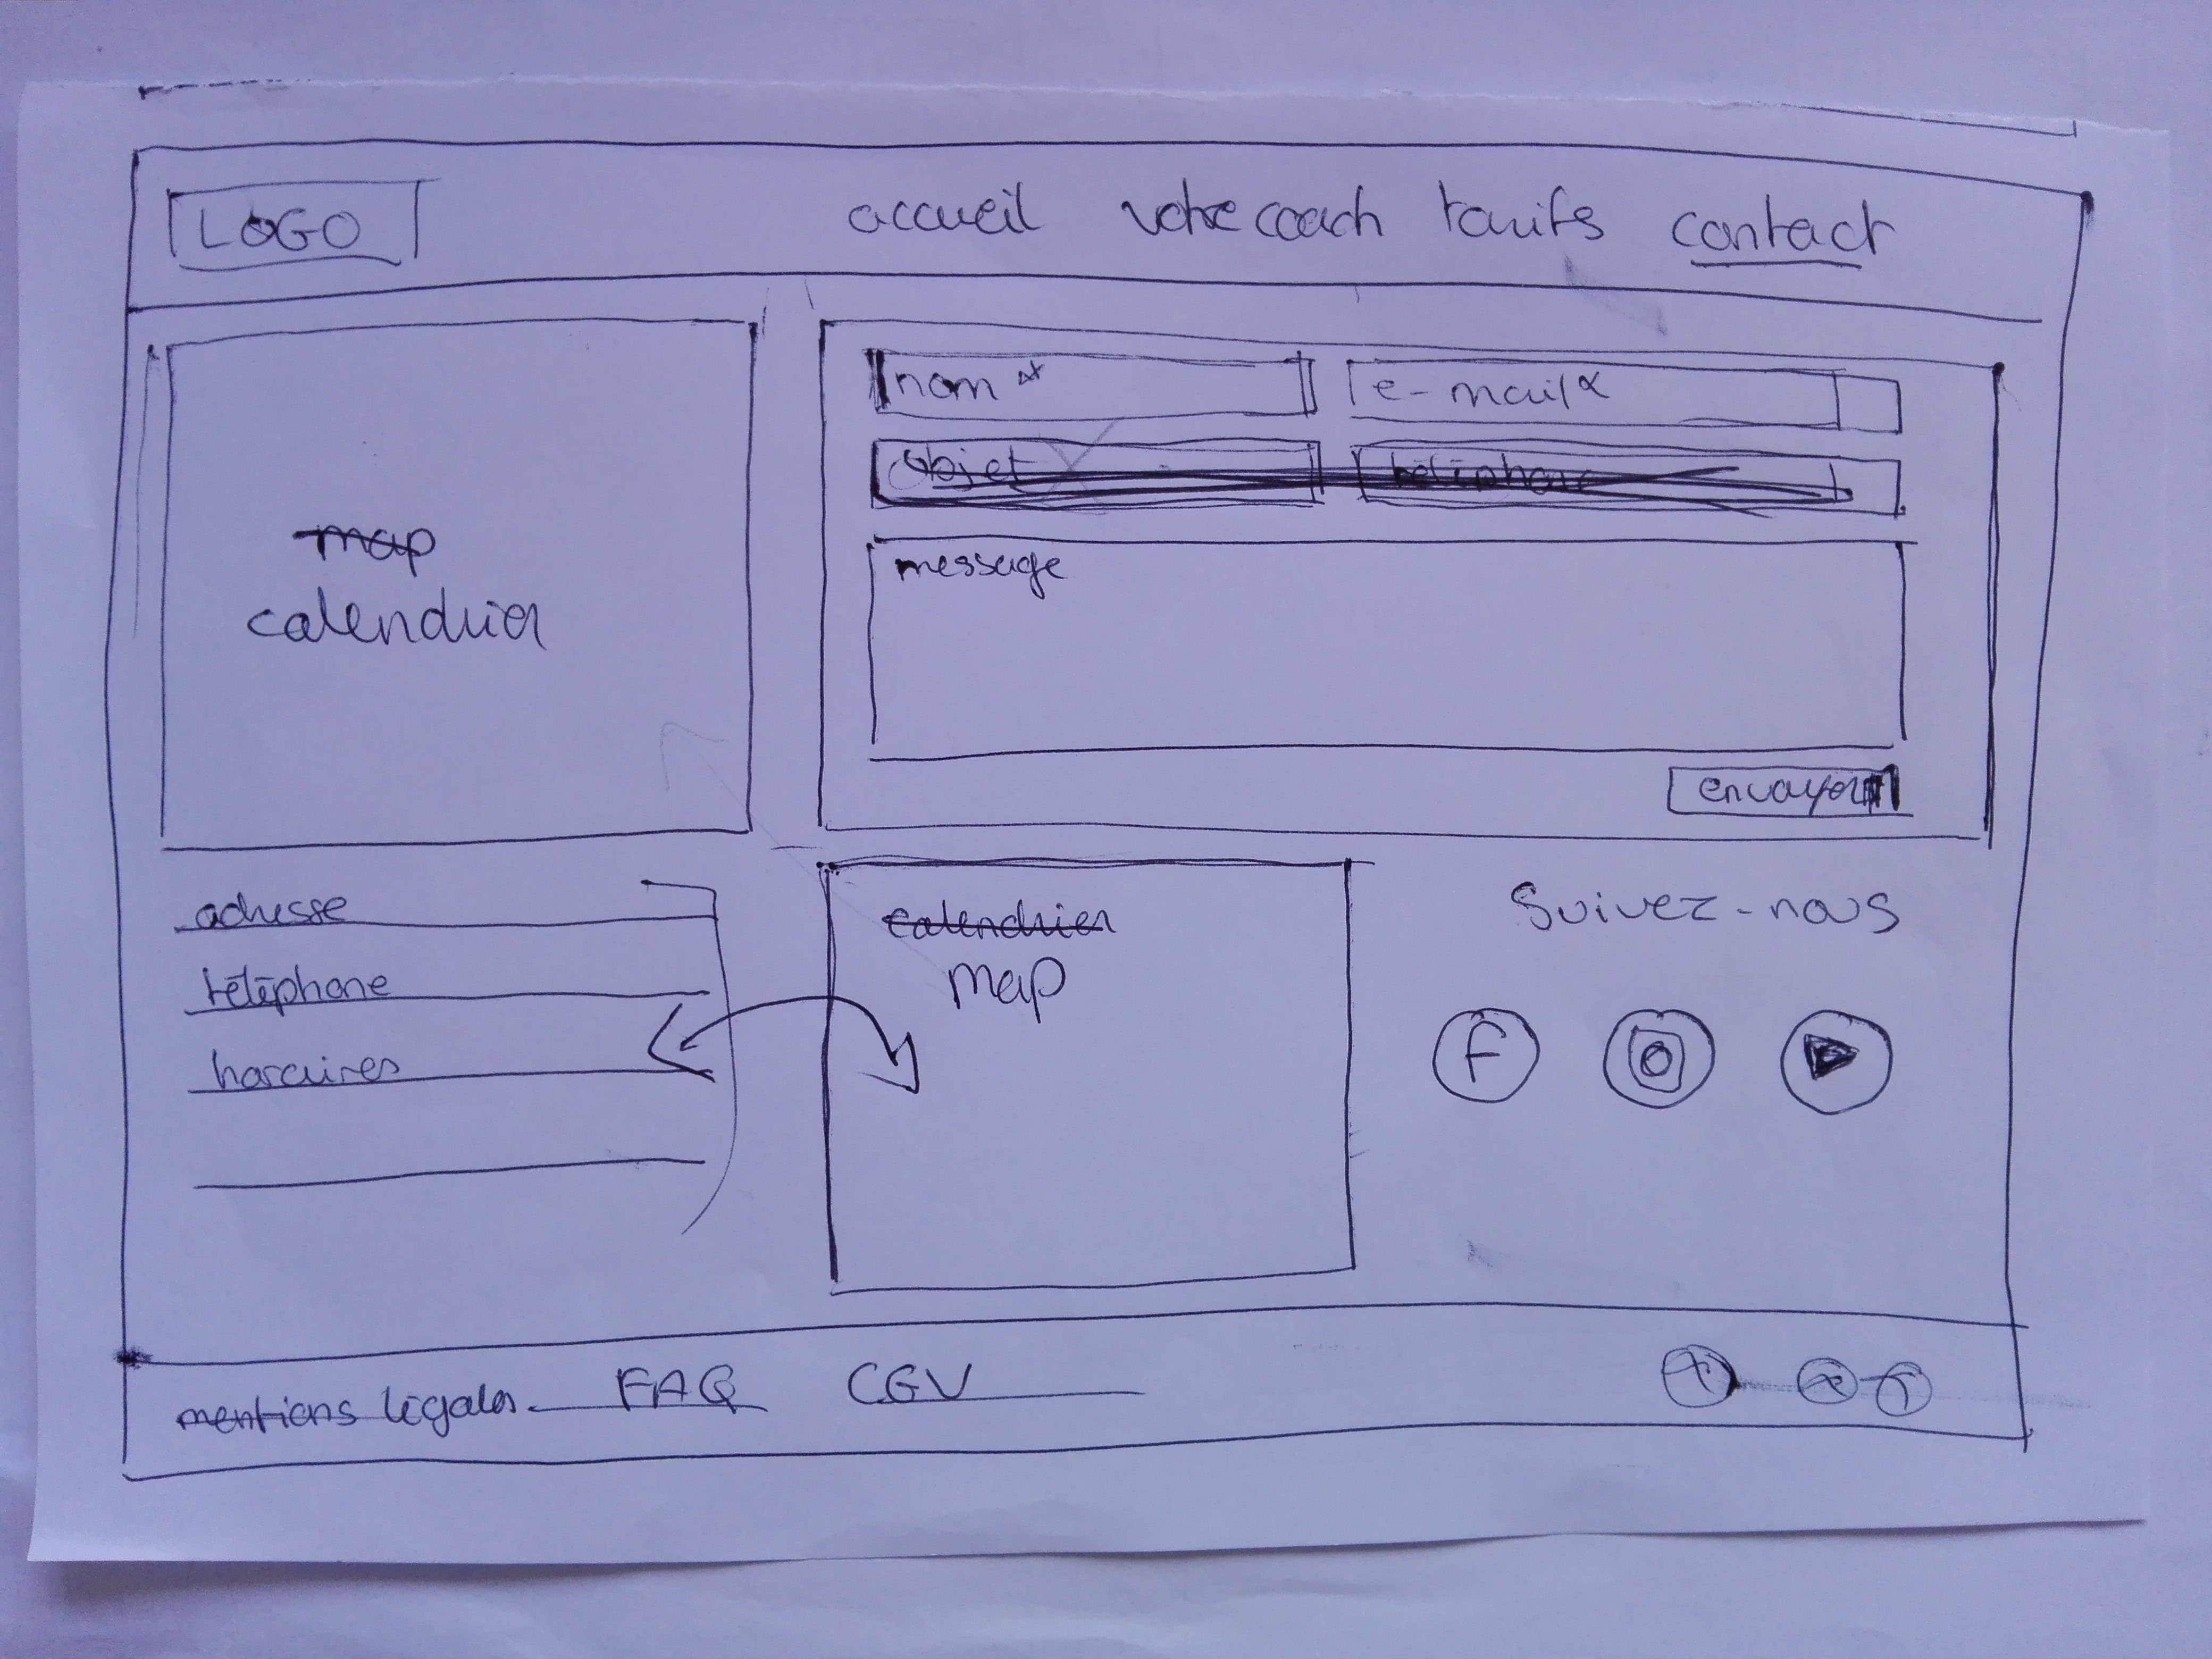 LOGO accueil votre coach tarifs contact
nom * e-mail *
Objet téléphone
message
map
calendrier
envoyer
adresse
téléphone
horaires
calendrier
map
Suivez-nous
f
mentions légales FAQ CGV